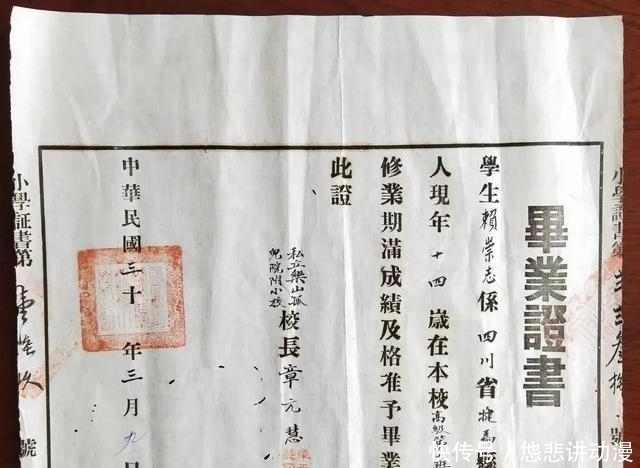 畢業證書
學生賴崇志係四川省犍為縣
人現年十四歲在本校高級第 班
修業期滿成績及格准予畢業
此證
私立樂山孤
兒院附小校
校長章元慧
中華民國三十 年三月九日
小學証書第壹 玖號
小學證書第 號
快传号/他悲讲动漫